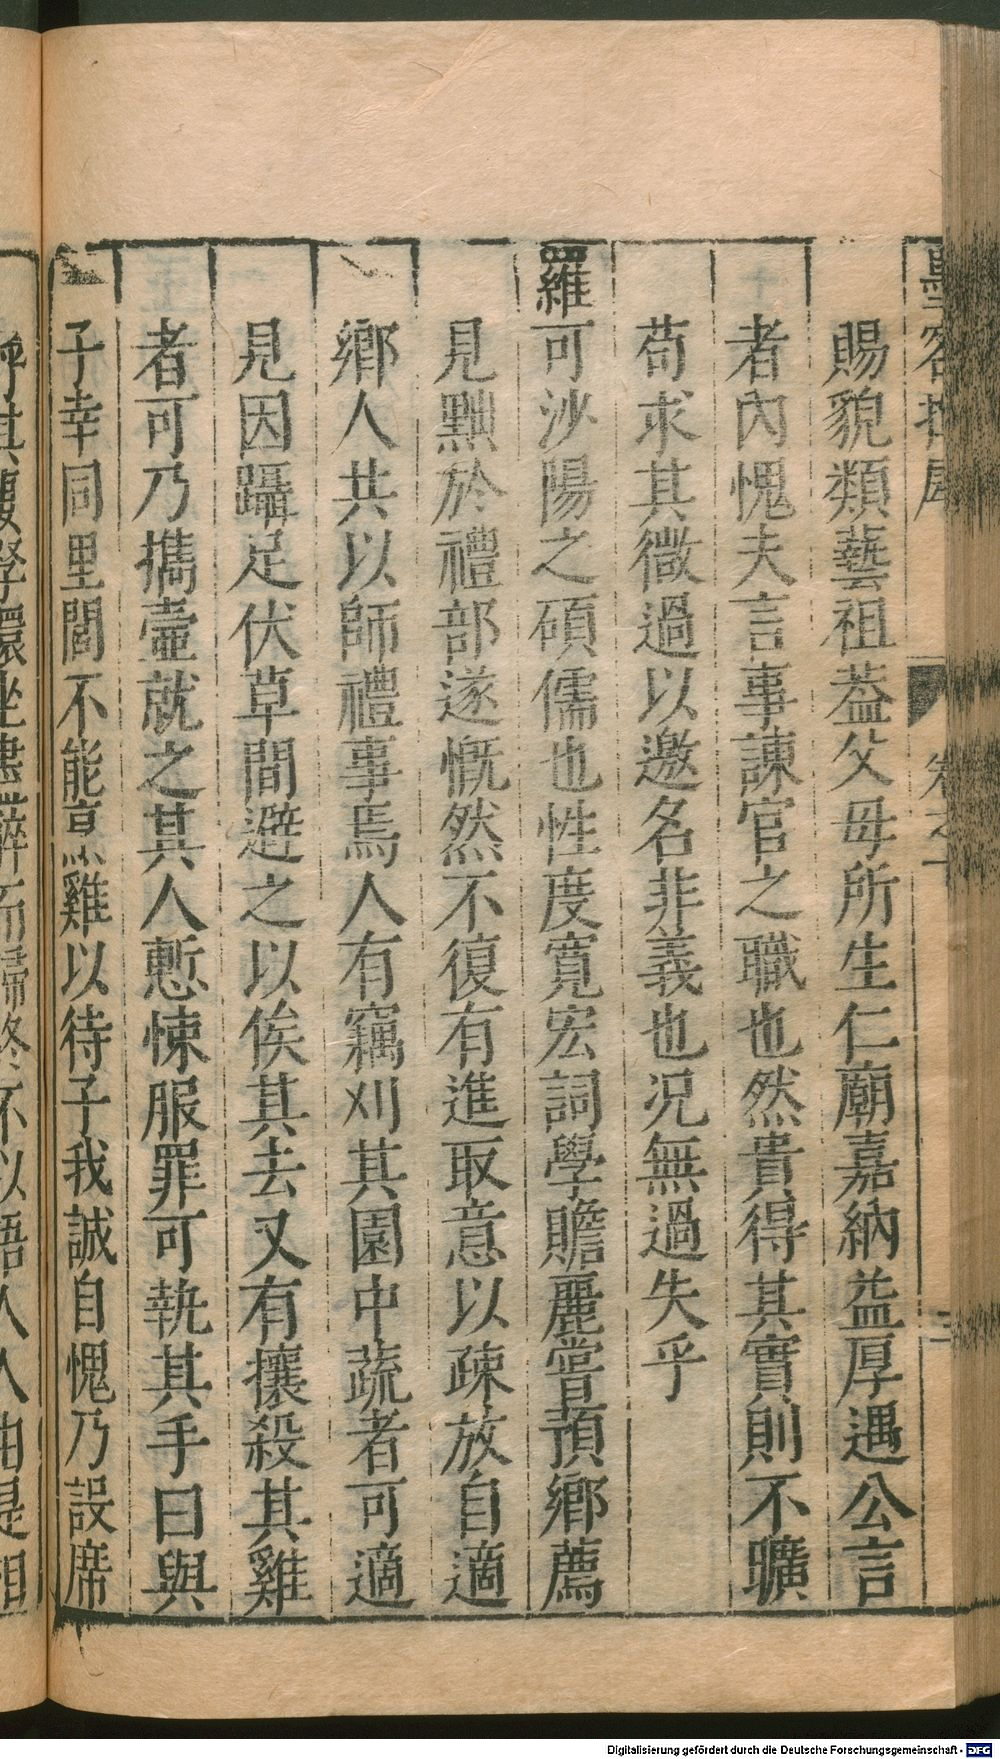 墨客揮犀
卷之一
賜貌類藝祖葢父母所生仁廟嘉納益厚遇公言
者內愧夫言事諫官之職也然貴得其實則不曠
苟求其微過以邀名非義也况無過失乎
羅可沙陽之碩儒也性度寬宏詞學贍麗嘗預鄉薦
見黜於禮部遂慨然不復有進取意以疎放自適
鄉人共以師禮事焉人有竊刈其園中蔬者可適
見因躡足伏草間避之以俟其去又有攘殺其雞
者可乃攜壺就之其人慙悚服罪可執其手曰與
子幸同里閭不能烹雞以待子我誠自愧乃設席
呼其妻孥環坐盡醉而歸終不以語人人由是相
Digitalisierung gefördert durch die Deutsche Forschungsgemeinschaft - DFG